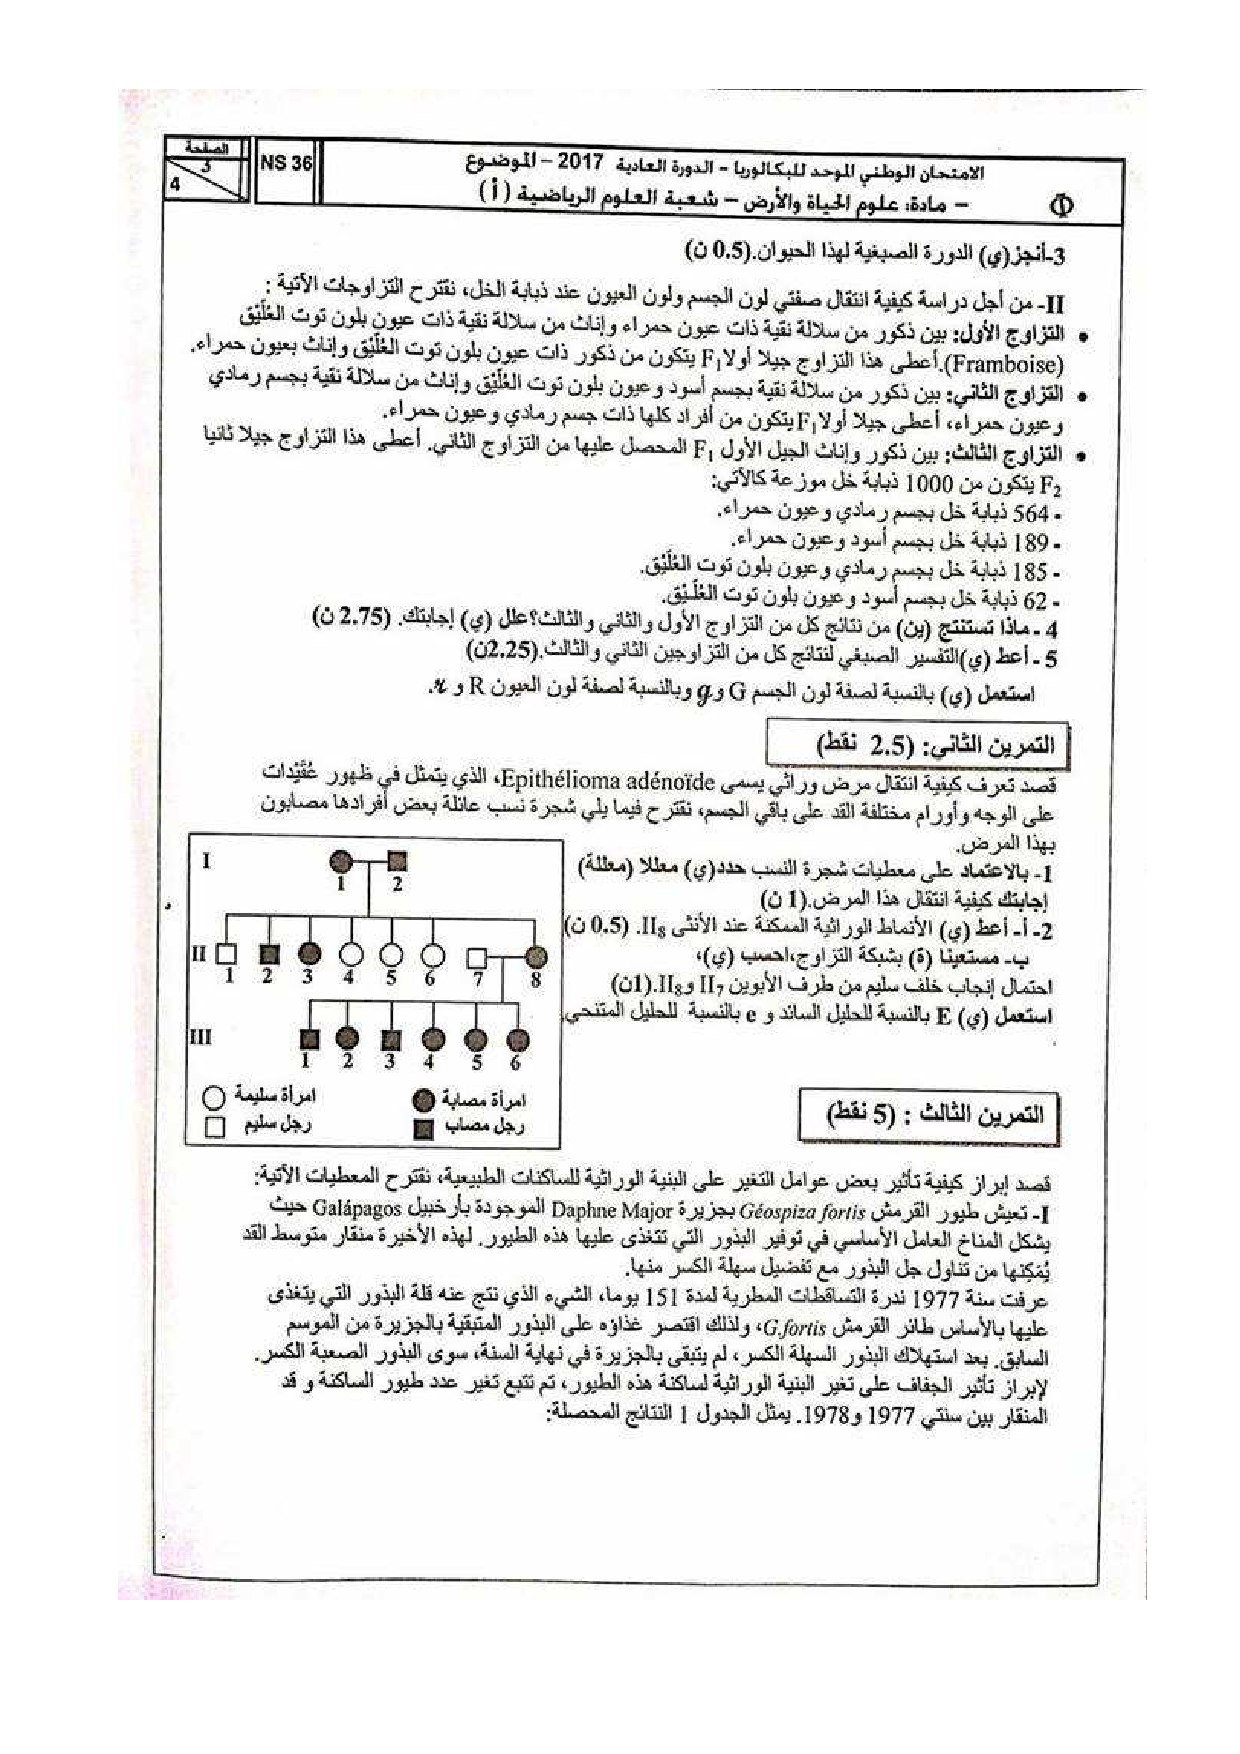 الصفحة
3
4
NS 36
الامتحان الوطني الموحد للبكالوريا – الدورة العادية 2017 – الموضوع
– مادة: علوم الحياة والأرض – شعبة العلوم الرياضية (أ)
3-أنجز(ي) الدورة الصبغية لهذا الحيوان.(0.5 ن)
II- من أجل دراسة كيفية انتقال صفتي لون الجسم ولون العيون عند ذبابة الخل، نقترح التزاوجات الآتية :
• التزاوج الأول: بين ذكور من سلالة نقية ذات عيون حمراء وإناث من سلالة نقية ذات عيون بلون توت العُلَّيْق
(Framboise).أعطى هذا التزاوج جيلا أولا F₁ يتكون من ذكور ذات عيون بلون توت العُلَّيْق وإناث بعيون حمراء.
• التزاوج الثاني: بين ذكور من سلالة نقية بجسم أسود وعيون بلون توت العُلَّيْق وإناث من سلالة نقية بجسم رمادي
وعيون حمراء، أعطى جيلا أولا F₁ يتكون من أفراد كلها ذات جسم رمادي وعيون حمراء.
• التزاوج الثالث: بين ذكور وإناث الجيل الأول F₁ المحصل عليها من التزاوج الثاني. أعطى هذا التزاوج جيلا ثانيا
F₂ يتكون من 1000 ذبابة خل موزعة كالآتي:
- 564 ذبابة خل بجسم رمادي وعيون حمراء.
- 189 ذبابة خل بجسم أسود وعيون حمراء.
- 185 ذبابة خل بجسم رمادي وعيون بلون توت العُلَّيْق.
- 62 ذبابة خل بجسم أسود وعيون بلون توت العُلَّيْق.
4 - ماذا تستنتج (ين) من نتائج كل من التزاوج الأول والثاني والثالث؟علل (ي) إجابتك. (2.75 ن)
5 - أعط (ي)التفسير الصبغي لنتائج كل من التزاوجين الثاني والثالث.(2.25ن)
استعمل (ي) بالنسبة لصفة لون الجسم G و g وبالنسبة لصفة لون العيون R و r.
التمرين الثاني: (2.5 نقط)
قصد تعرف كيفية انتقال مرض وراثي يسمى Epithélioma adénoïde، الذي يتمثل في ظهور عُقَيْدات
على الوجه وأورام مختلفة القد على باقي الجسم، نقترح فيما يلي شجرة نسب عائلة بعض أفرادها مصابون
بهذا المرض.
1- بالاعتماد على معطيات شجرة النسب حدد(ي) معللا (معللة)
إجابتك كيفية انتقال هذا المرض.(1 ن)
2- أ- أعط (ي) الأنماط الوراثية الممكنة عند الأنثى II₈. (0.5 ن)
ب- مستعينا (ة) بشبكة التزاوج،احسب (ي)،
احتمال إنجاب خلف سليم من طرف الأبوين II₇ و II₈.(1ن)
استعمل (ي) E بالنسبة للحليل السائد و e بالنسبة للحليل المتنحي.
I
1 2
II
1 2 3 4 5 6 7 8
III
1 2 3 4 5 6
امرأة سليمة
امرأة مصابة
رجل سليم
رجل مصاب
التمرين الثالث : (5 نقط)
قصد إبراز كيفية تأثير بعض عوامل التغير على البنية الوراثية للساكنات الطبيعية، نقترح المعطيات الآتية:
I- تعيش طيور القرمش Géospiza fortis بجزيرة Daphne Major الموجودة بأرخبيل Galápagos حيث
يشكل المناخ العامل الأساسي في توفير البذور التي تتغذى عليها هذه الطيور. لهذه الأخيرة منقار متوسط القد
يُمَكِنها من تناول جل البذور مع تفضيل سهلة الكسر منها.
عرفت سنة 1977 ندرة التساقطات المطرية لمدة 151 يوما، الشيء الذي نتج عنه قلة البذور التي يتغذى
عليها بالأساس طائر القرمش G.fortis، ولذلك اقتصر غذاؤه على البذور المتبقية بالجزيرة من الموسم
السابق. بعد استهلاك البذور السهلة الكسر، لم يتبقى بالجزيرة في نهاية السنة، سوى البذور الصعبة الكسر.
لإبراز تأثير الجفاف على تغير البنية الوراثية لساكنة هذه الطيور، تم تتبع تغير عدد طيور الساكنة و قد
المنقار بين سنتي 1977 و1978. يمثل الجدول 1 النتائج المحصلة: